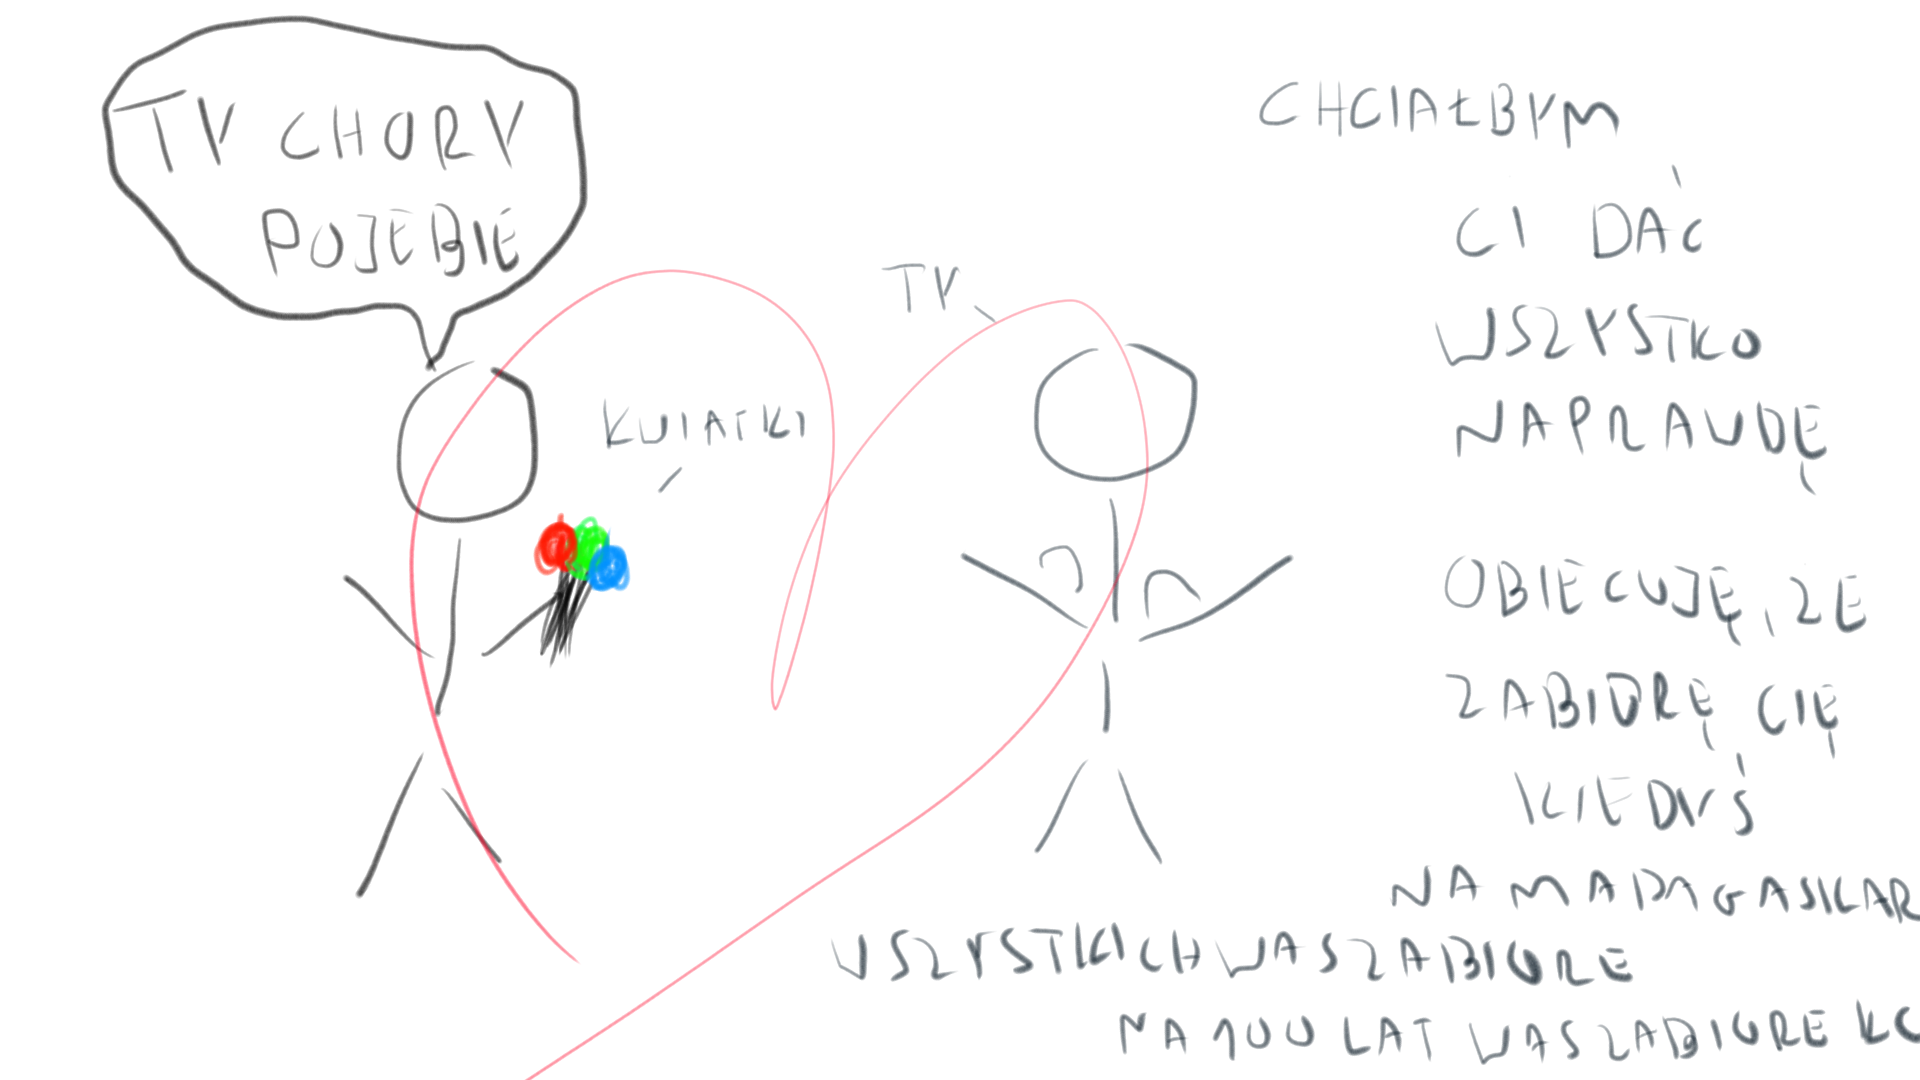 TY CHORY
POJEBIE
KWIATKI
TY
CHCIAŁBYM
CI DAĆ
WSZYSTKO
NAPRAWDĘ
OBIECUJĘ, ZE
ZABIORĘ CIĘ
KIEDYŚ
NA MADAGASKAR
WSZYSTKICH WAS ZABIORE
NA 100 LAT WAS ZABIORE KC